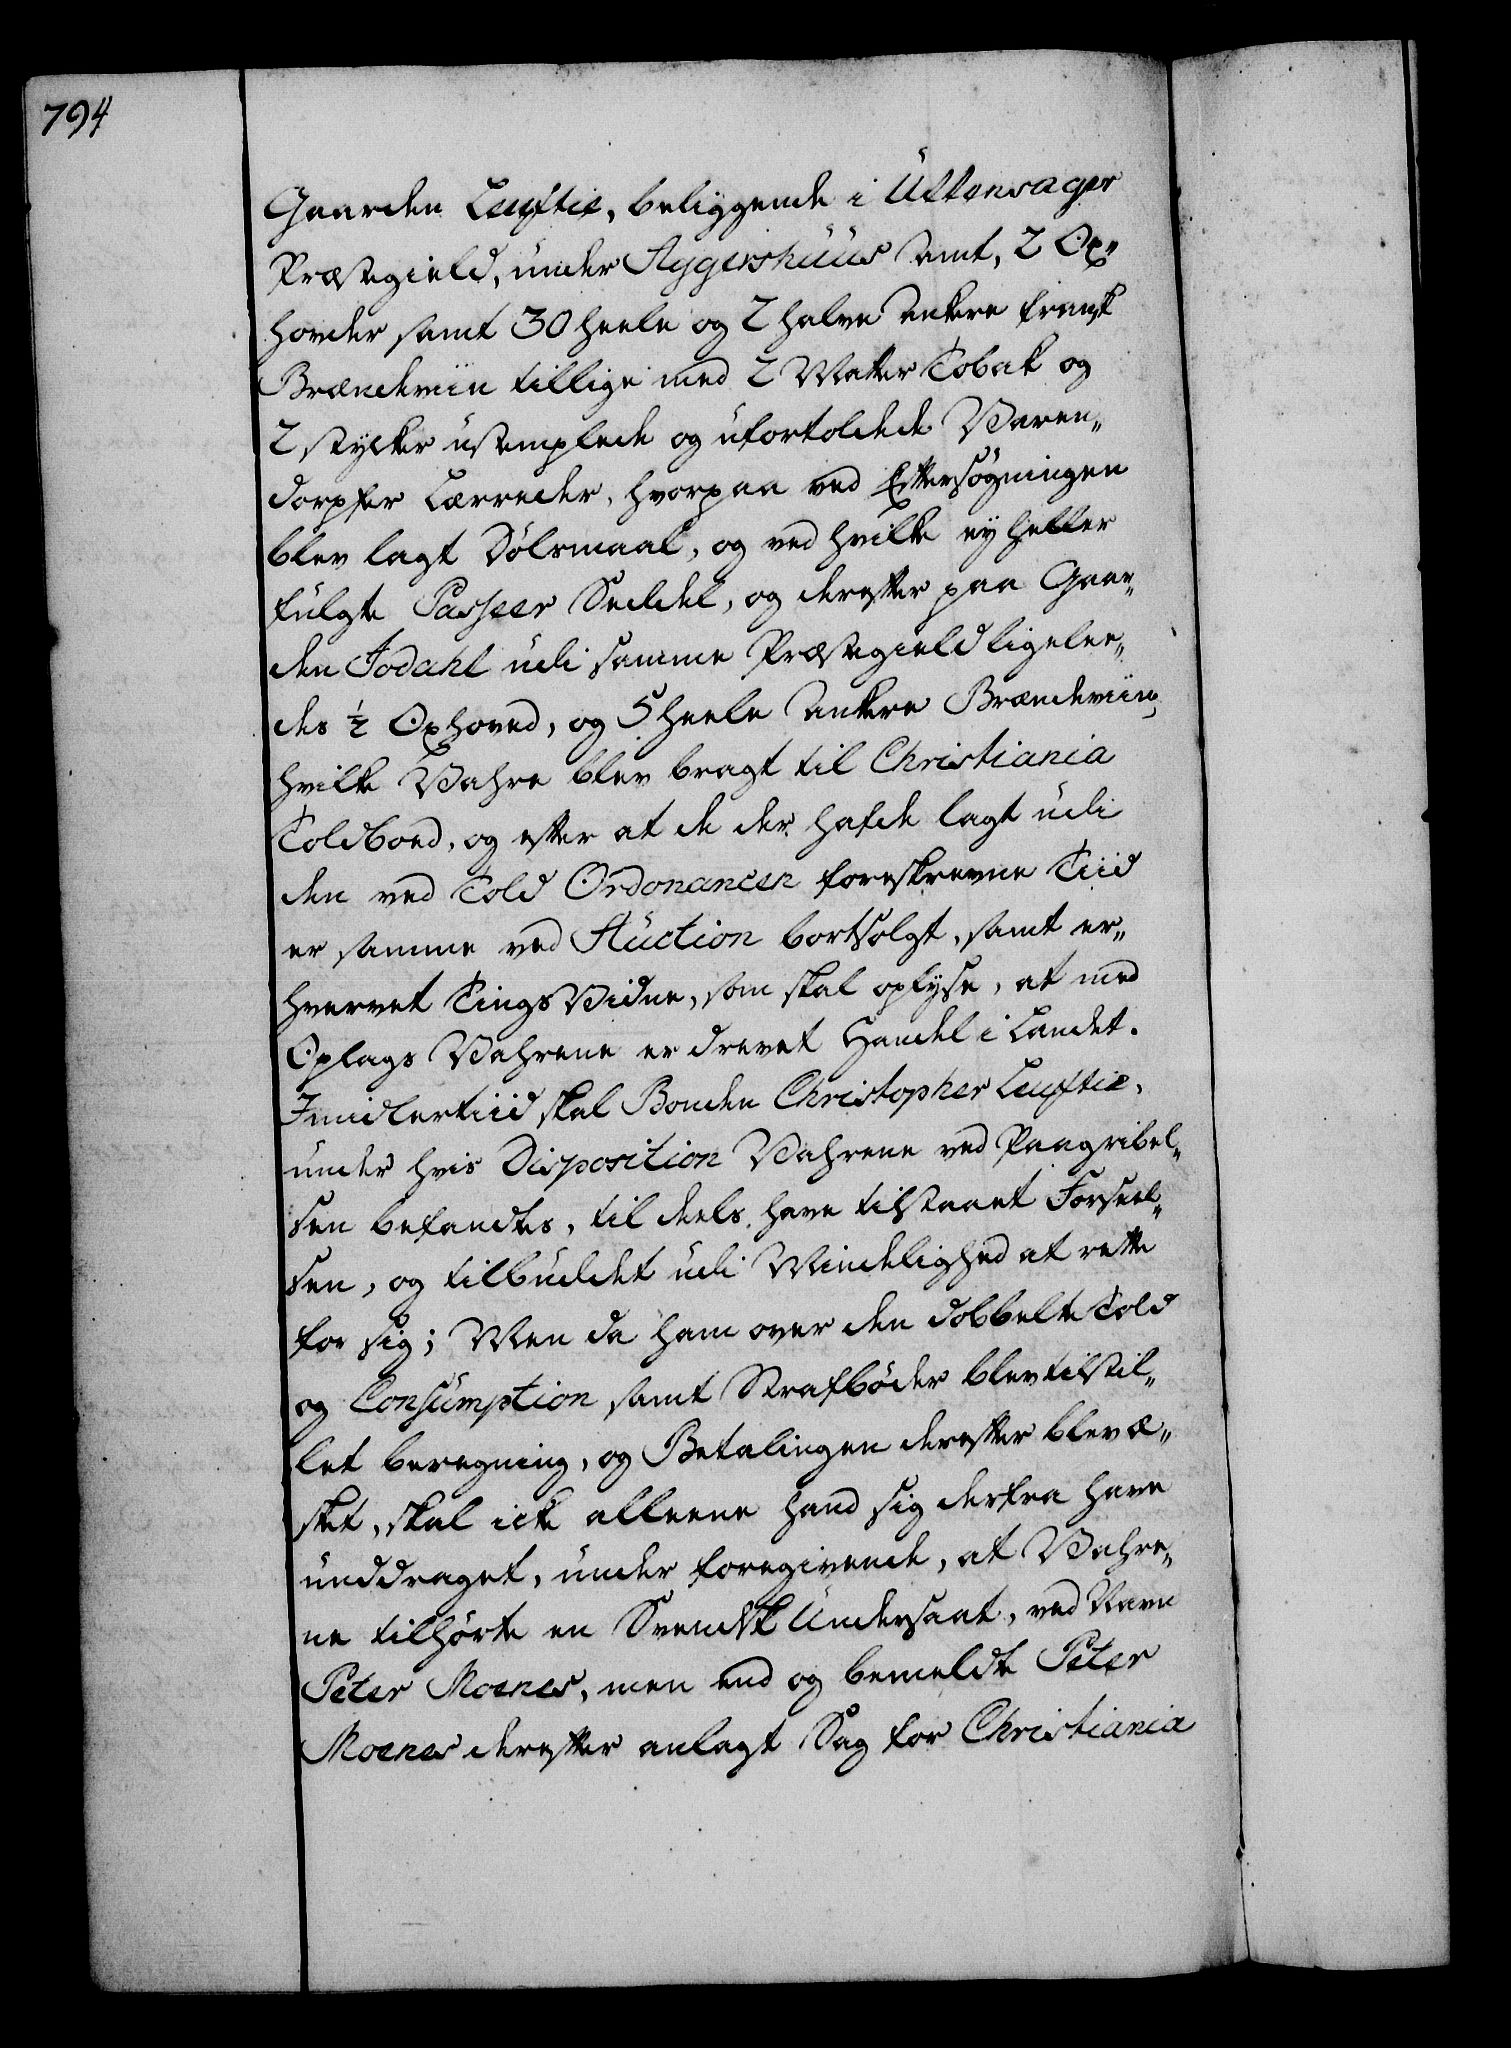 794
Gaarden Leuftie, beliggende i Uttensager
Præstegield, under Aggershuus Amt, 2 Ox„
hovder samt 30 heele og 2 halve Ankere fransk
Brændeviin tillige med 2 Matter Tobak og
2 stycker ustemplede og ufortoldede Varen„
dorpfer Lærreder, hvorpaa ved Eftersøgningen
blev lagt Dølsmaal, og ved hvilke ey heller
fulgte Passeer Seddel, og derefter paa Gaar„
den Jodahl udi samme Præstegield ligelee„
des ½ Oxhoved, og 5 heele Ankere Brændeviin,
hvilke Vahre blev bragt til Christiania
Toldboed, og efter at de der hafde lagt udi
den ved Told Ordonancen foreskrevne Tiid
er samme ved Auction bortsolgt, samt er„
hvervet Tings Vidne, som skal oplyse, at med
Oplags Vahrene er drevet Handel i Landet.
Imidlertiid skal Bonden Christopher Leuftie,
under hvis Disposition Vahrene ved Paagribel„
sen befandtes, til deels have tilstaaet Forseel„
sen, og tilbuddet udi Mindelighed at rette
for sig; Men da ham over den dobbelte Told
og Consumption samt Strafbøder blev tilstil„
let beregning, og Betalingen derefter blev æ„
sket, skal icke alleene hand sig derfra have
unddraget, under foregivende, at Vahre„
ne tilhørte en Svendsk Undersaat, ved Navn
Peter Moenes, men end og bemeldte Peter
Moenes derefter anlagt Sag for Christiania